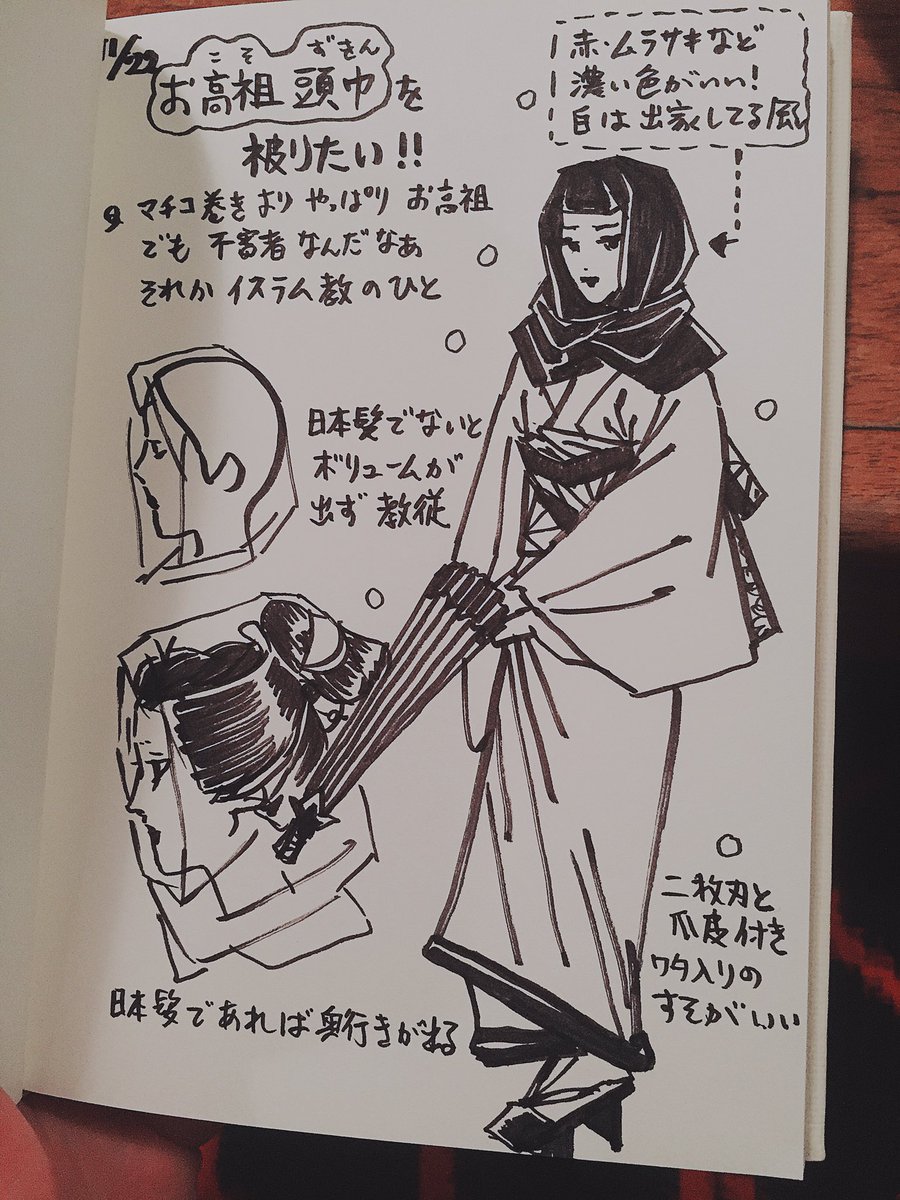 11/22
こそ ずきん
お高祖頭巾を
被りたい!!
マチコ巻きより やっぱり お高祖
でも 不審者なんだなあ
それか イスラム教のひと
赤・ムラサキなど
濃い色がいい!
白は出家してる風
日本髪でないと
ボリュームが
出ず 教徒
日本髪であれば奥行きが出る
二枚刃と
爪皮付き
ワタ入りの
すそがいい